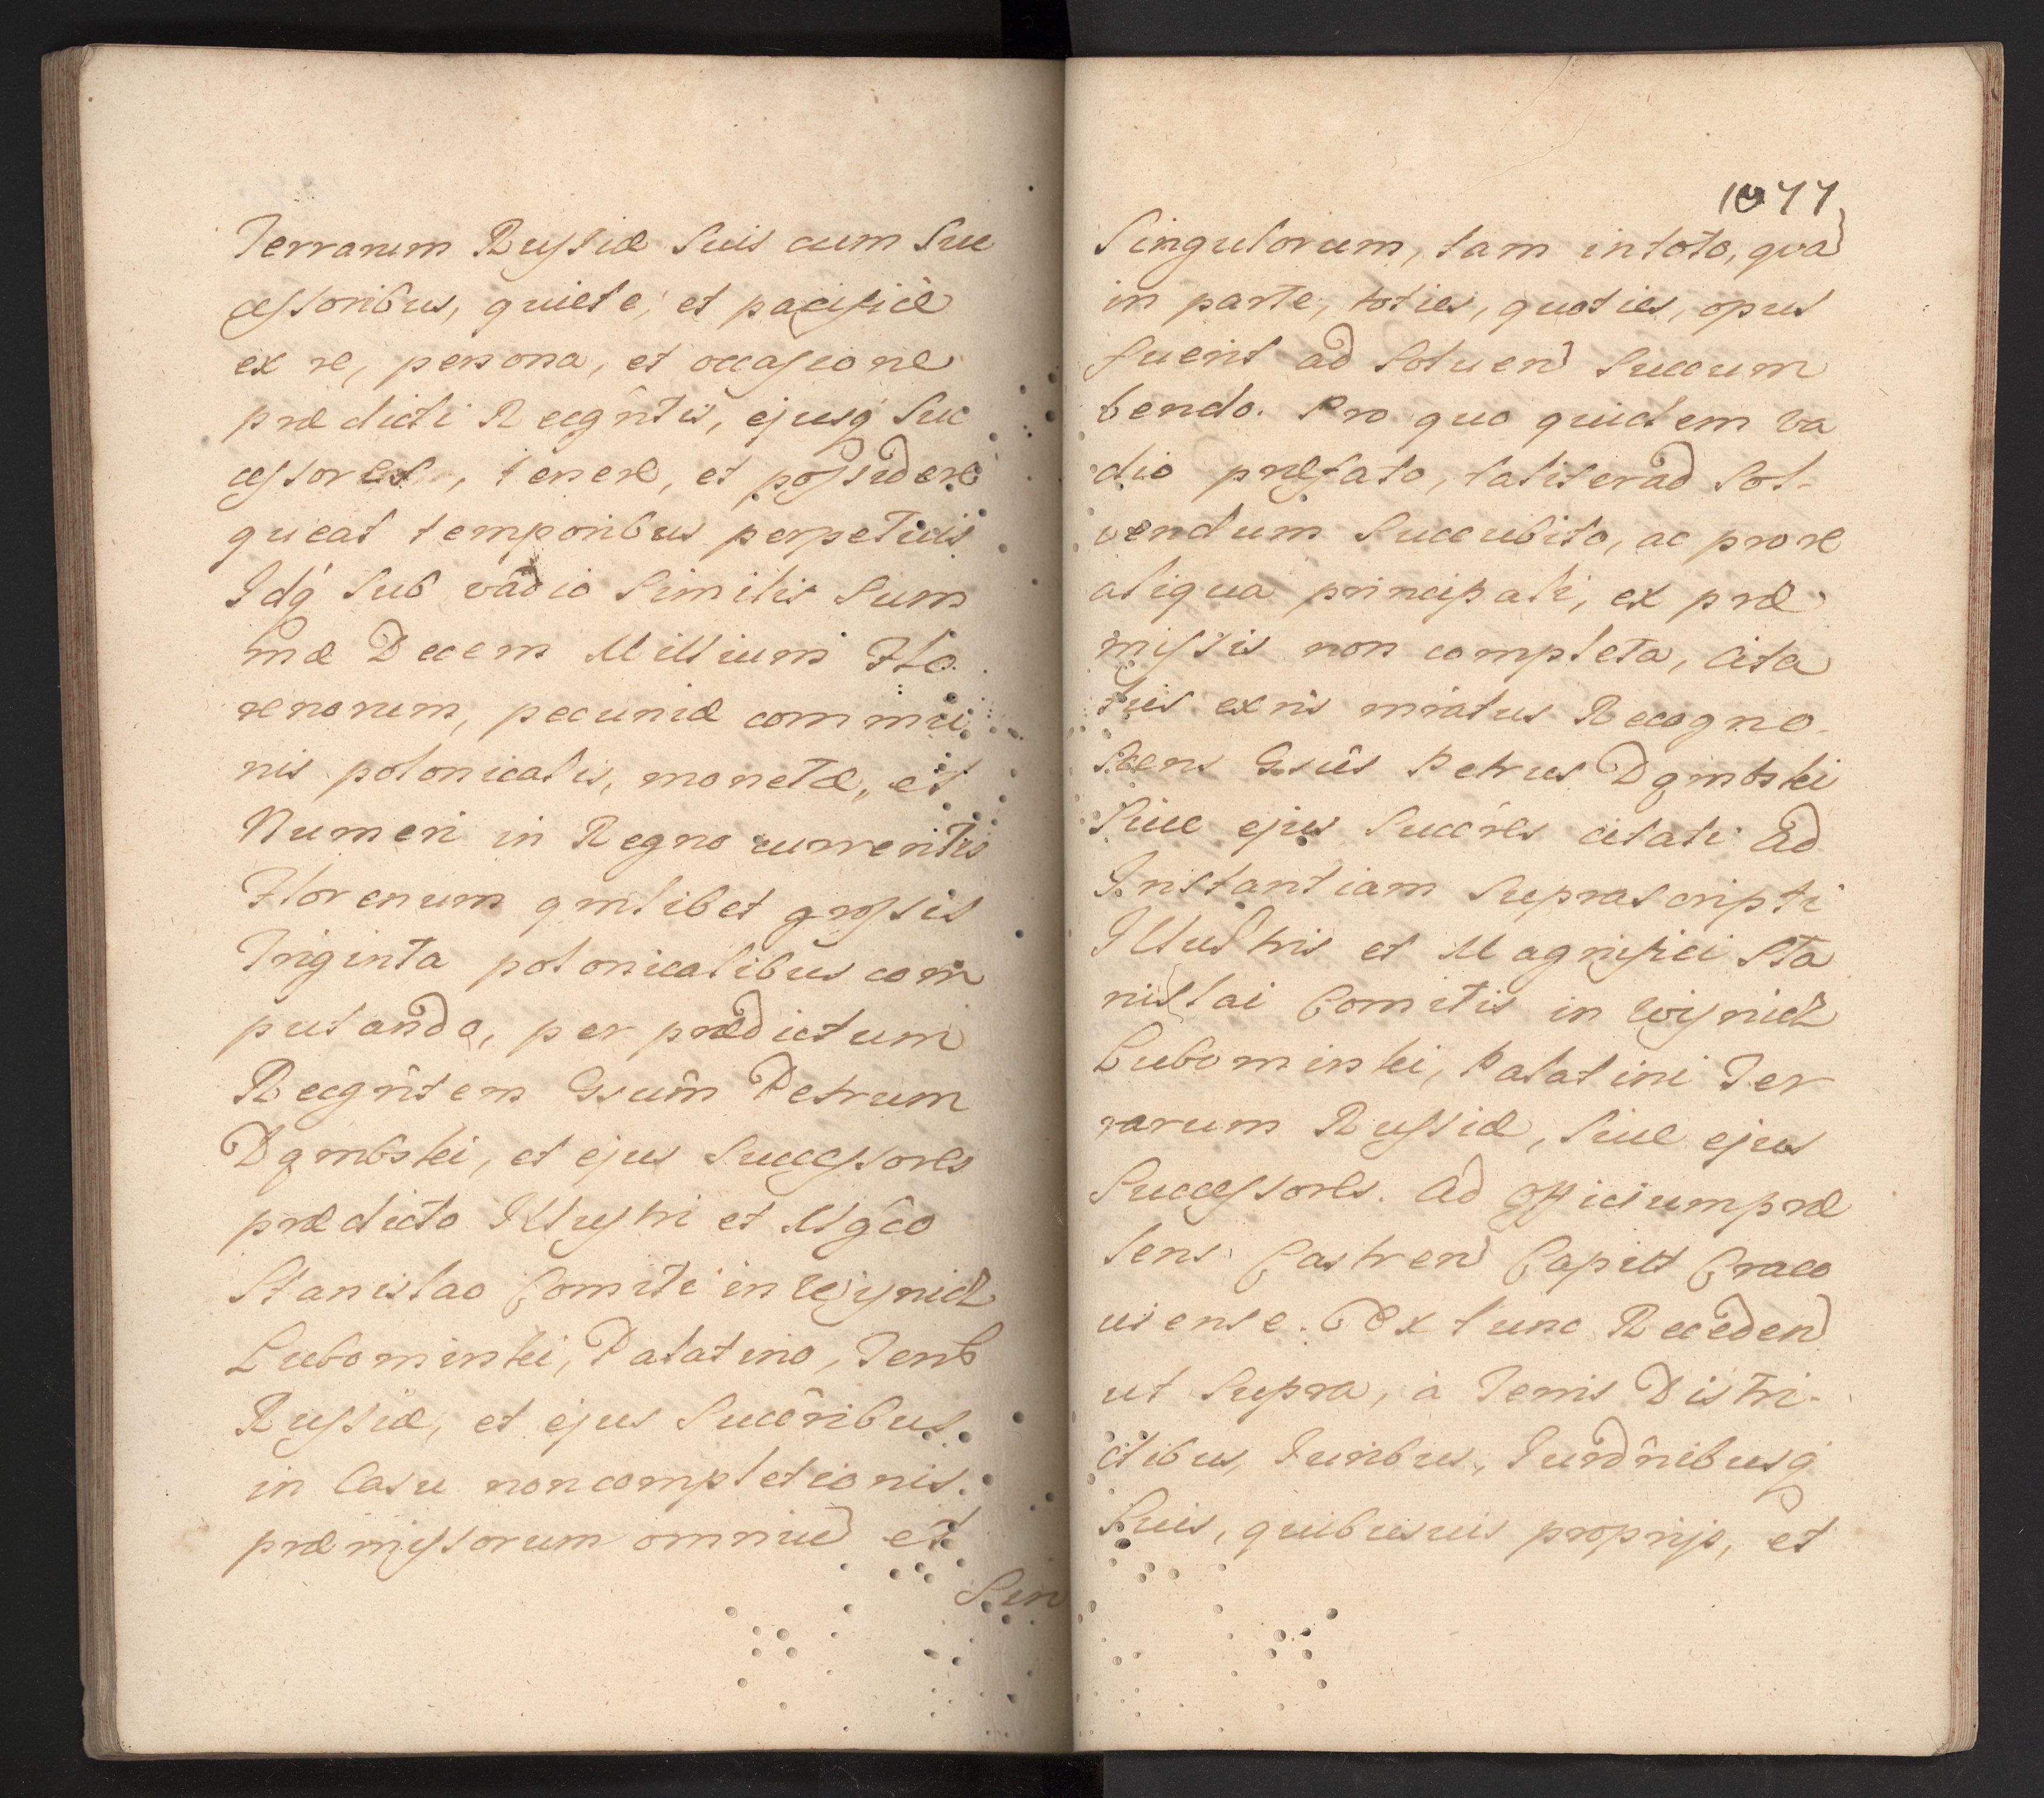 Terrarum Russiæ Suis cum Suc
cessoribus, quiete, et pacificè
ex re, persona, et occasione
prædicti Recgñtis, ejusq́ Suc
cessores, tenere, et possidere
queat temporibus perpetuis
Idq́ Sub vadio Similis Sum
mæ Decem Millium Flo
renorum, pecuniæ commu
nis polonicalis, monetæ, et
Numeri in Regno currentis
Florenum qmlibet grossis
Triginta polonicalibus com
putando, per prædictum
Recgñtem Gsum̃ Petrum
Dąmbski, et ejus Successores
prædicto Illustri et Mg̃co
Stanislao Comiti in Wisnicz
Lubomirski, Palatino, Terr
Russiæ, et ejus Succr̃ibus
in Casu non completionis
præmissorum omniu et
Sin
1077
Singulorum, tam in toto, qua
in parte, toties, quoties, opus
fuerit ad Solvend Succum
bendo. Pro quo quidem va
dio præfato, taliter ad Sol-
vendum Succubito, ac pro re
aliqua principali, ex præ
missis non completa, Cita
tus exñs mratus Recogno-
scens Gsũs Petrus Dąmbski
Siue ejus Succr̃es citati Ad
Instantiam Suprascripti
Illustris et Magnifici Sta
nislai Comitis in Wisnicz
Lubomirski, Palatini Ter
rarum Russiæ, Siue ejus
Successores. Ad Officium præ
sens Castren Capitt Craco
uiense. Ex tunc Recedend
ut Supra, à Terris Distri-
ctibus, Juribus, Jurdñibusq́
Suis, quibusuis proprijs, et